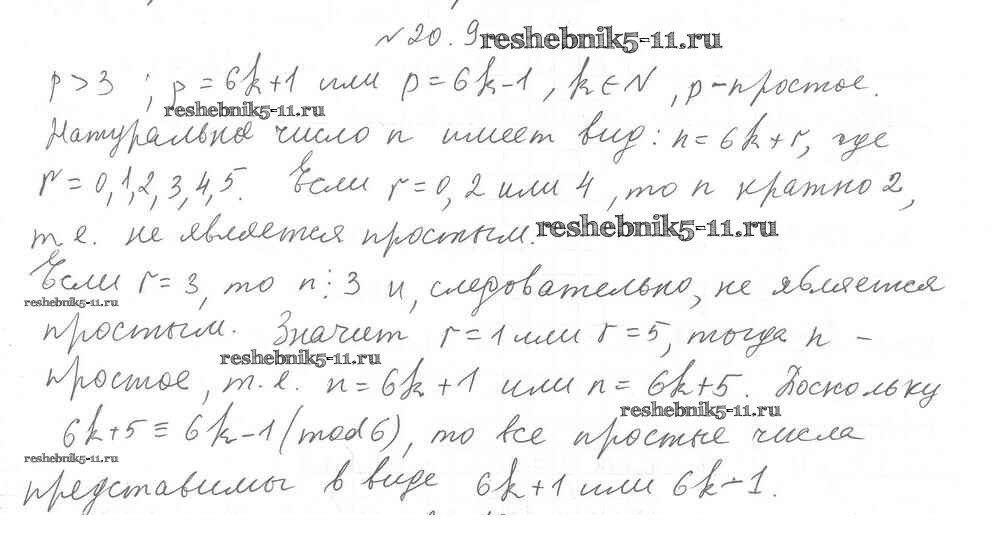 № 20.9 reshebnik5-11.ru
p > 3 ; p = 6k+1 или p = 6k-1, k ∈ N, p - простое.
reshebnik5-11.ru
Натуральное число n имеет вид: n = 6k + r, где
r = 0, 1, 2, 3, 4, 5. Если r = 0, 2 или 4, то n кратно 2,
т.е. не является простым. reshebnik5-11.ru
Если r = 3, то n ⋮ 3 и, следовательно, не является
reshebnik5-11.ru
простым. Значит r = 1 или r = 5, тогда n -
reshebnik5-11.ru
простое, т.е. n = 6k + 1 или n = 6k + 5. Поскольку
reshebnik5-11.ru
6k + 5 ≡ 6k - 1 (mod 6), то все простые числа
reshebnik5-11.ru
представимы в виде 6k + 1 или 6k - 1.